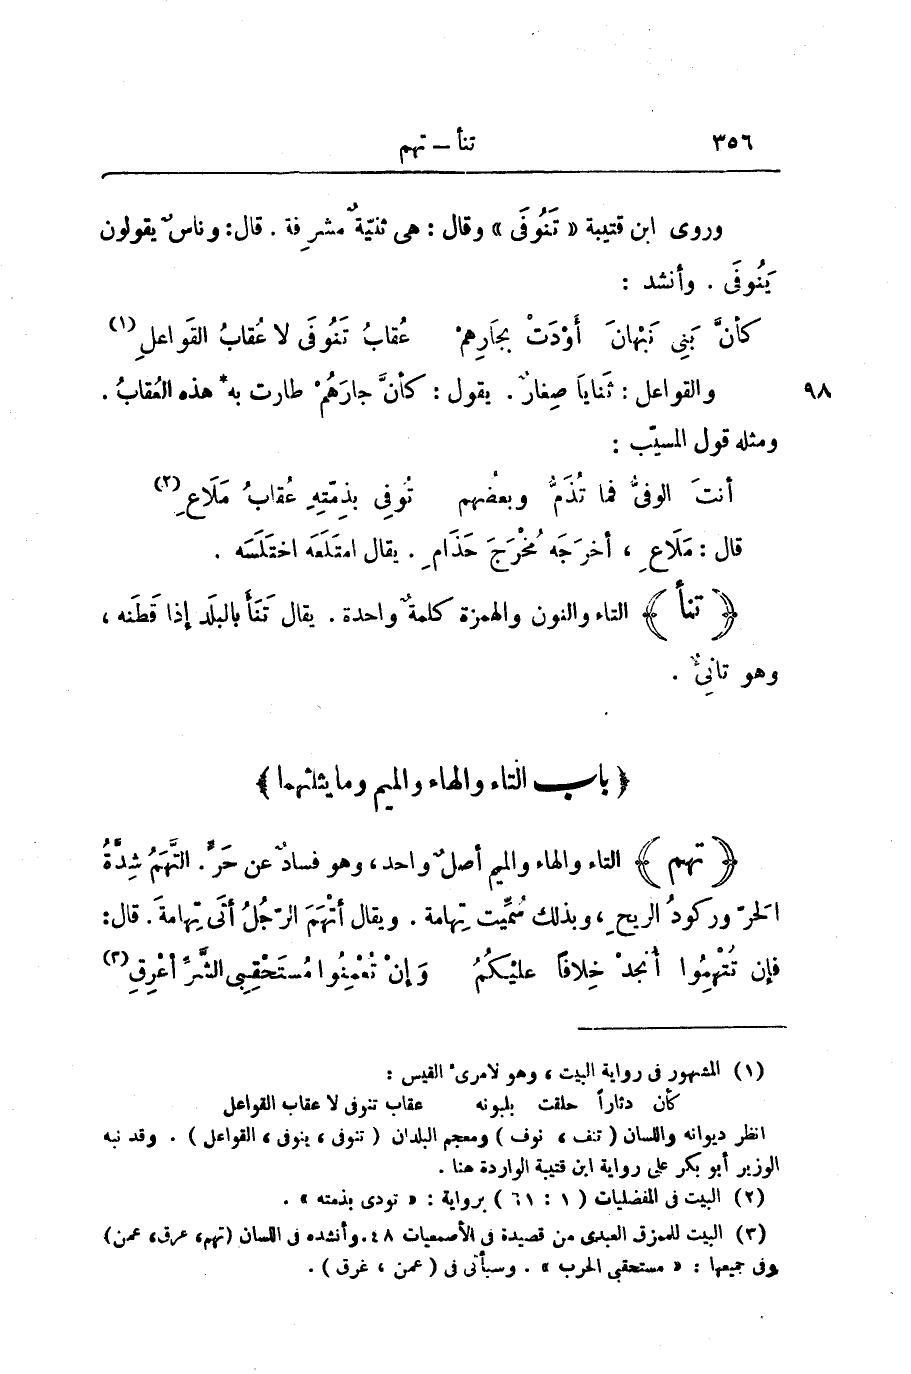 ٣٥٦
تنأ – تهم
وروى ابن قتيبة « تَنُوفَى » وقال : هى ثنيّةٌ مشرِفة . قال : وناسٌ يقولون
يَنُوفَى . وأنشد :
كأنَّ بَنِى نَبْهانَ أَوْدَتْ بجَارِهِمْ عُقابُ تَنُوفَى لا عُقابُ القَواعلِ (١)
٩٨ والقواعل : ثَنايَا صِغارٌ . يقول : كأنَّ جارَهُمْ طارت به* هذه العُقابُ .
ومثله قول المسيّب :
أنتَ الوفىُّ فما تُذَمُّ وبعضُهم تُوفِى بذِمّتِهِ عُقابُ مَلَاعِ (٢)
قال : مَلَاعِ ، أخرَجَه مُخْرَجَ حَذَامِ . يقال امتَلَعَه اختَلَسَه .
﴿ تنأ ﴾ التاء والنون والهمزة كلمةٌ واحدة . يقال تَنَأَ بالبلَدِ إذا قَطَنه ،
وهو تانِىٌ .
﴿ باب التاء والهاء والميم وما يثلثهما ﴾
﴿ تهم ﴾ التاء والهاء والميم أصلٌ واحد ، وهو فسادٌ عن حَرٍّ . التَّهَمُ شِدَّةُ
الحرّ وركودُ الريحِ ، وبذلك سُمِّيت تِهامة . ويقال أَتْهَمَ الرّجُلُ أتَى تِهامةَ . قال :
فإن تُتْهِمُوا أُنجدْ خِلافًا عليْكُمُ وَإنْ تُعْمِنُوا مُستَحْقِبِى الشَّرِّ أعْرِقِ (٣)
(١) المشهور فى رواية البيت ، وهو لامرىء القيس :
كأن دثاراً حلقت بلبونه عقاب تنوفى لا عقاب القواعل
انظر ديوانه واللسان ( تنف ، نوف ) ومعجم البلدان ( تنوفى ، ينوفى ، القواعل ) . وقد نبه
الوزير أبو بكر على رواية ابن قتيبة الواردة هنا .
(٢) البيت فى المفضليات ( ١ : ٦١ ) برواية : « تودى بذمته » .
(٣) البيت للممزق العبدى من قصيدة فى الأصمعيات ٤٨ . وأنشده فى اللسان (تهم، عرق، عمن)
وفى جميعها : « مستحقبى الحرب » . وسيأتى فى ( عمن ، غرق ) .